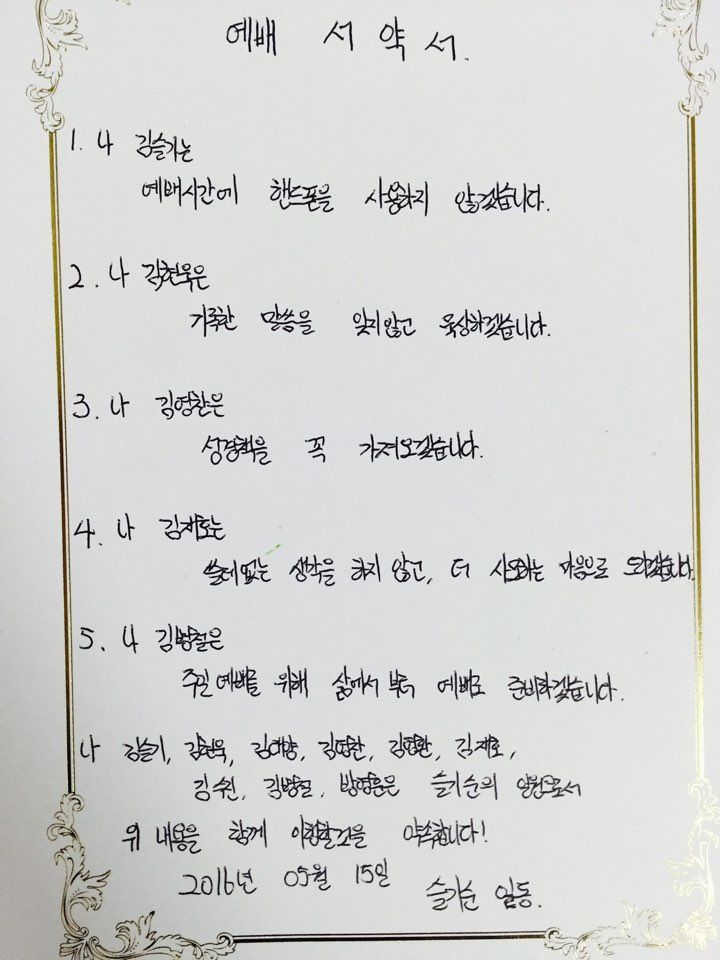 예배 서약서.
1. 나 김슬기는
예배시간에 핸드폰을 사용하지 않겠습니다.
2. 나 김현욱은
거룩한 말씀을 잊지않고 묵상하겠습니다.
3. 나 김영찬은
성경책을 꼭 가져오겠습니다.
4. 나 김재호는
쓸데없는 생각을 하지 않고, 더 사모하는 마음으로 드리겠습니다.
5. 나 김병철은
주일예배를 위해 삶에서 부터 예배로 준비하겠습니다.
나 김슬기, 김현욱, 김영찬, 김재호,
김수원, 김병철, 방영훈은 슬기순의 일원으로서
위 내용을 함께 이행할것을 약속합니다!
2016년 05월 15일 슬기순 일동.